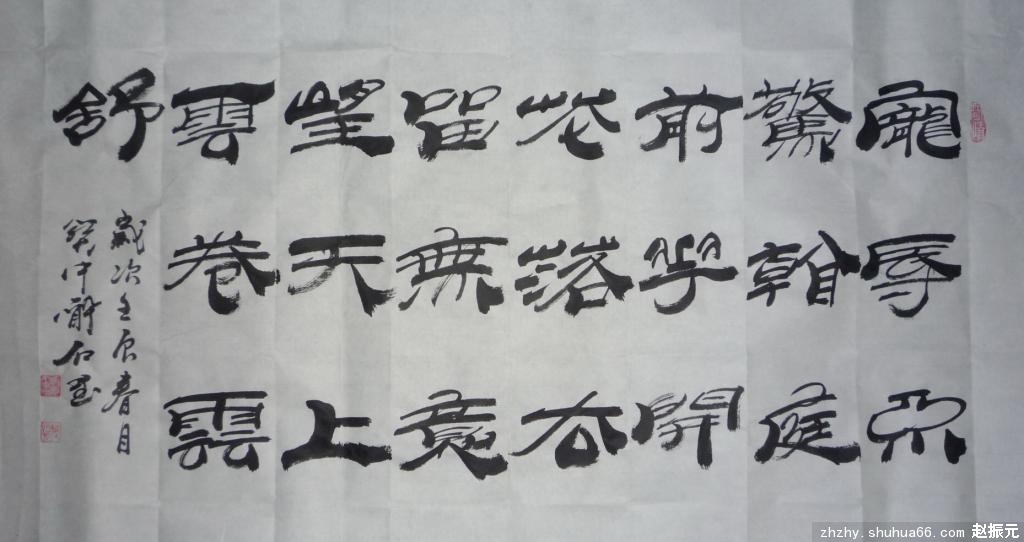 寵辱不
驚看庭
前花開
花落去
留無意
望天上
雲卷雲
舒
歲次壬辰春月
zhzhy.shuhua66.com 赵振元